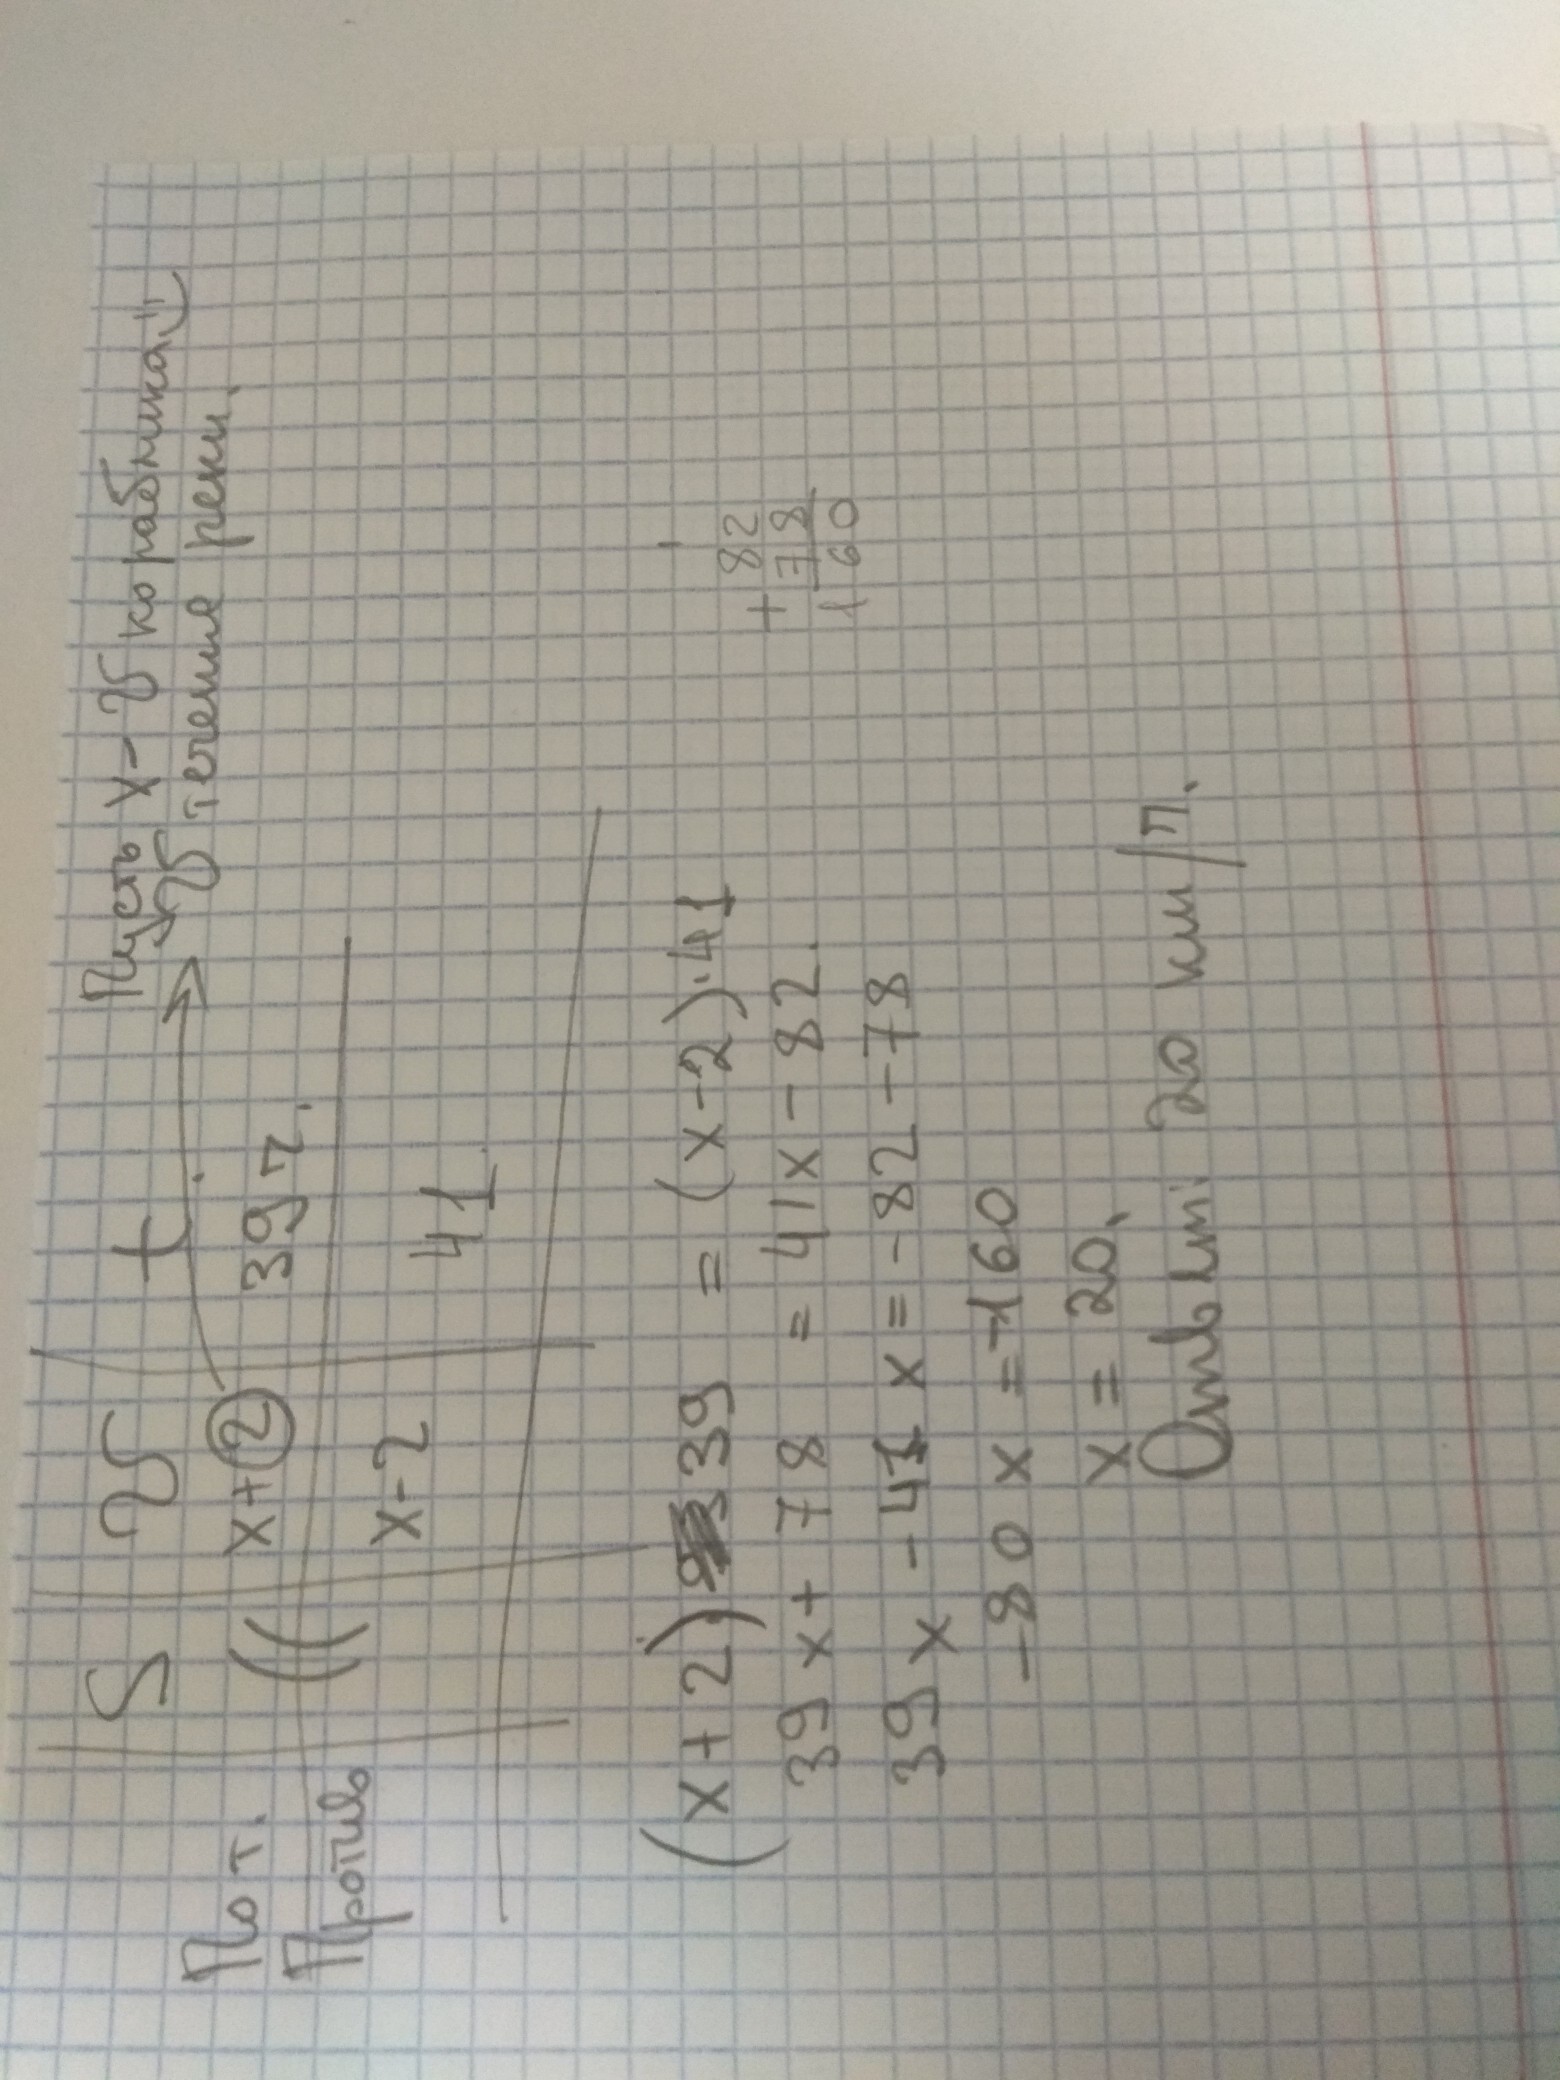 Пусть x - v кораблика
v течение реки.
S v t
По т. x+2 39 ч.
Против x-2 41
(x+2) 39 = (x-2)·41
39x+78 = 41x-82.
39x-41x=-82-78
-80x=-160
x=20.
Ответ: 20 км/ч.
+82
78
160